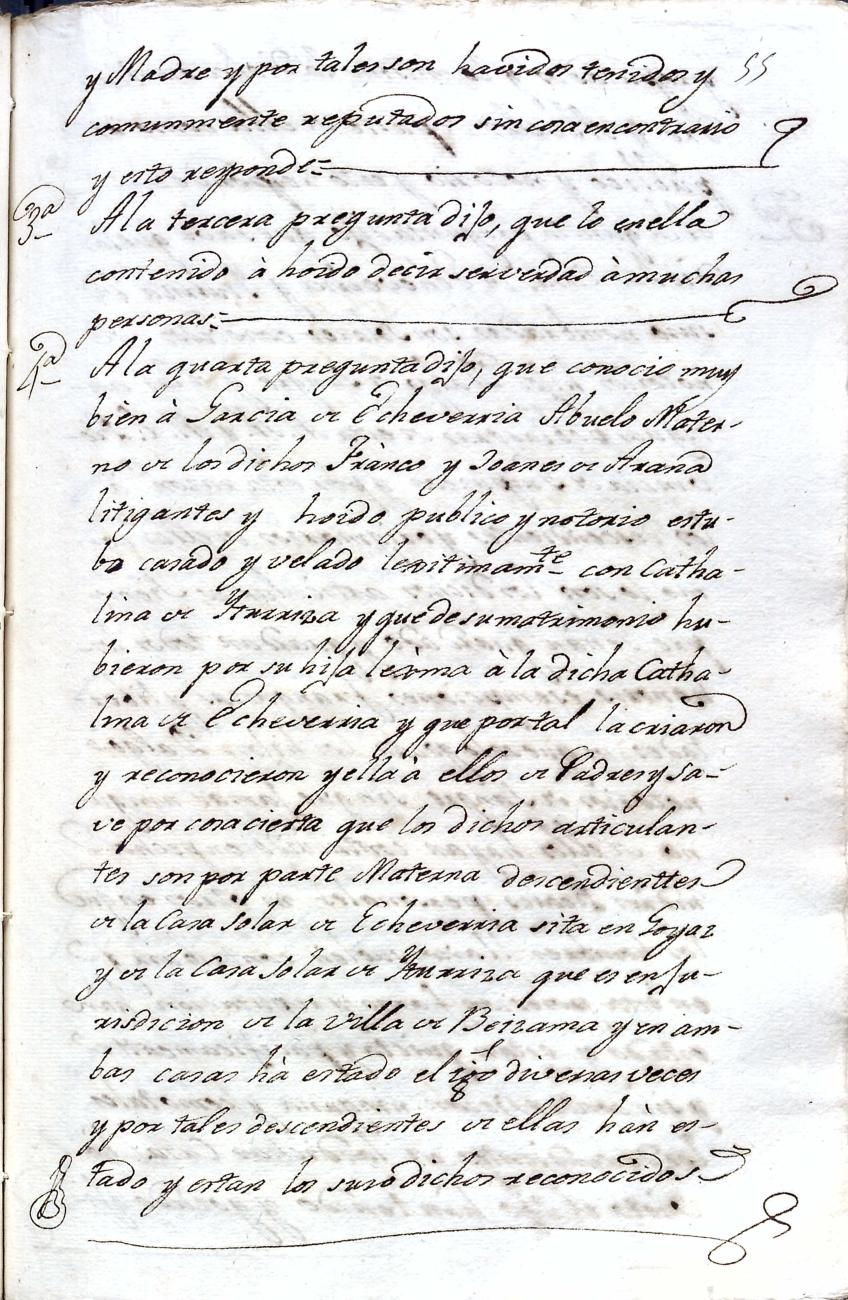 55
y Madre y por tales son havidos tenidos y
comunmente reputados sin cosa encontrario
y esto responde=
3ª
A la tercera pregunta dijo, que lo en ella
contenido à hoido decir ser verdad à muchas
personas=
4ª
A la quarta pregunta dijo, que conocio muy
bièn à Garcia de Echeverria Abuelo Mater-
no de los dichos Frànco y Joanes de Arana
litigantes y hoido publico y notorio estu-
bo casado y velado lexitimamte con Catha-
lina de Yturriza y que de su matrimonio hu-
bieron por su hija lexma à la dicha Catha-
lina de Echeverria y que por tal la criaron
y reconocieron y ella à ellos de Padres y sa-
ve por cosa cierta que los dichos articulan-
tes son por parte Materna descendienttes
de la Casa solar de Echeverria sita en Goyaz
y de la Casa solar de Yturriza que es en Ju-
risdicion de la villa de Beizama y en am-
bas casas hà estado el tgo diversas veces
y por tales descendientes de ellas hàn es-
tado y estan los suso dichos reconocidos